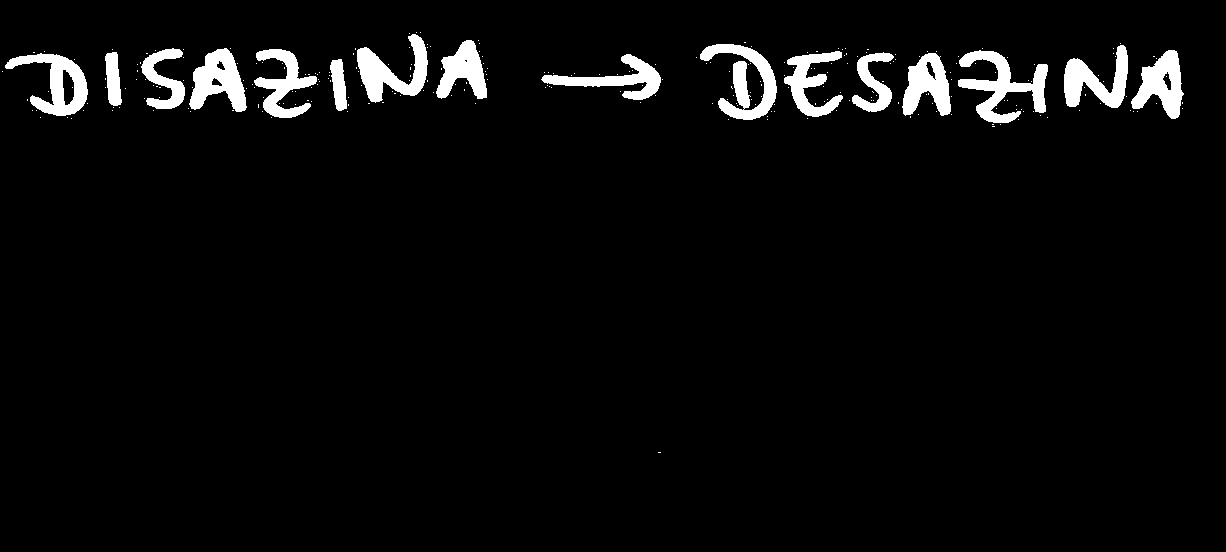 DISAZINA → DESAZINA